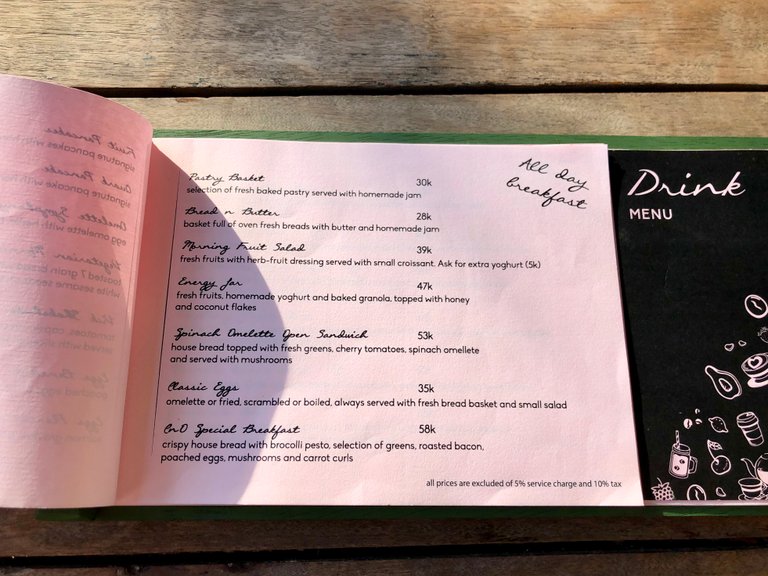 All day
breakfast
Pastry Basket 30k
selection of fresh baked pastry served with homemade jam
Bread n Butter 28k
basket full of oven fresh breads with butter and homemade jam
Morning Fruit Salad 39k
fresh fruits with herb-fruit dressing served with small croissant. Ask for extra yoghurt (5k)
Energy Jar 47k
fresh fruits, homemade yoghurt and baked granola, topped with honey
and coconut flakes
Spinach Omelette Open Sandwich 53k
house bread topped with fresh greens, cherry tomatoes, spinach omellete
and served with mushrooms
Classic Eggs 35k
omelette or fried, scrambled or boiled, always served with fresh bread basket and small salad
Special Breakfast 58k
crispy house bread with brocolli pesto, selection of greens, roasted bacon,
poached eggs, mushrooms and carrot curls
all prices are excluded of 5% service charge and 10% tax
Drink
MENU